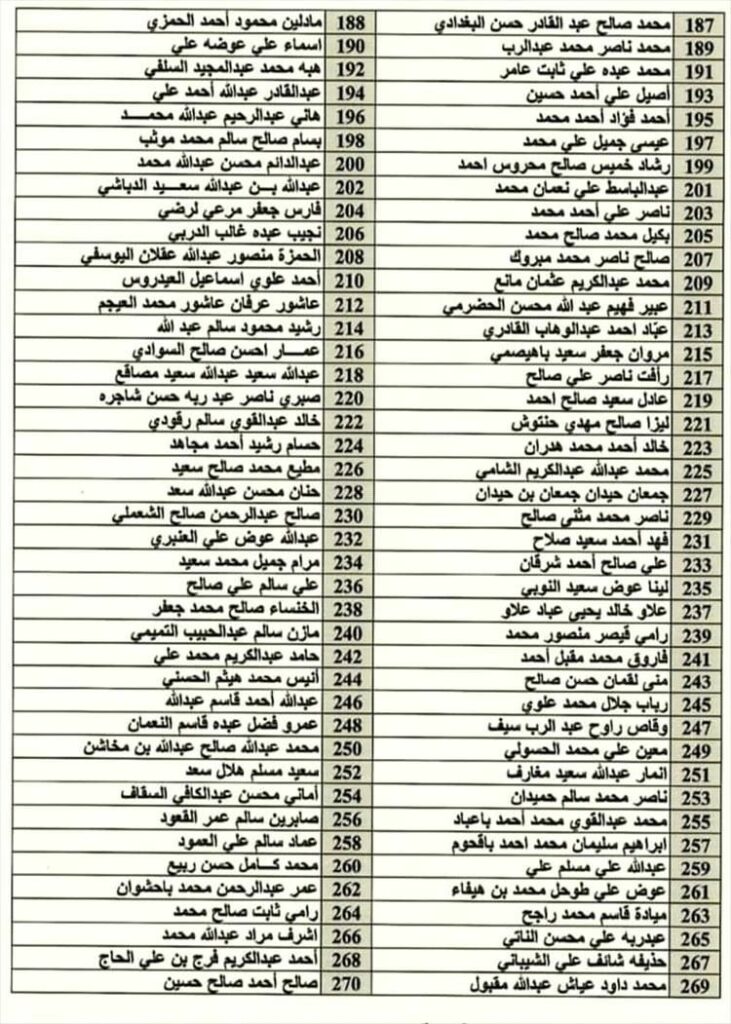 187 محمد صالح عبد القادر حسن البغدادي 188 مادلين محمود أحمد الحمزي
189 محمد ناصر محمد عبدالرب 190 اسماء علي عوضه علي
191 محمد عبده علي ثابت عامر 192 هبه محمد عبدالمجيد السلفي
193 أصيل علي أحمد حسين 194 عبدالقادر عبدالله أحمد علي
195 أحمد فؤاد أحمد محمد 196 هاني عبدالرحيم عبدالله محمـــد
197 عيسى جميل علي محمد 198 بسام صالح سالم محمد موثب
199 رشاد خميس صالح محروس احمد 200 عبدالدائم محسن عبدالله محمد
201 عبدالباسط علي نعمان محمد 202 عبدالله بــن عبدالله سعــيد الدباشي
203 ناصر علي أحمد محمد 204 فارس جعفر مرعي لرضي
205 بكيل محمد صالح محمد 206 نجيب عبده غالب الدربي
207 صالح ناصر محمد مبروك 208 الحمزة منصور عبدالله عقلان اليوسفي
209 محمد عبدالكريم عثمان مانع 210 أحمد علوي اسماعيل العيدروس
211 عبير فهيم عبد الله محسن الحضرمي 212 عاشور عرفان عاشور محمد العيجم
213 عبّاد احمد عبدالوهاب القادري 214 رشيد محمود سالم عبد الله
215 مروان جعفر سعيد باهيصمي 216 عمـــار احسن صالح السوادي
217 رأفت ناصر علي صالح 218 عبدالله سعيد عبدالله سعيد مصافع
219 عادل سعيد صالح احمد 220 صبري ناصر عبد ربه حسن شاجره
221 ليزا صالح مهدي حنتوش 222 خالد عبدالقوي سالم رقودي
223 خالد أحمد محمد هدران 224 حسام رشيد أحمد مجاهد
225 محمد عبدالله عبدالكريم الشامي 226 مطيع محمد صالح سعيد
227 جمعان حيدان جمعان بن حيدان 228 حنان محسن عبدالله سعد
229 ناصر محمد مثنى صالح 230 صالح عبدالرحمن صالح الشعملي
231 فهد أحمد سعيد صلاح 232 عبدالله عوض علي العنبري
233 علي صالح أحمد شرقان 234 مرام جميل محمد سعيد
235 لينا عوض سعيد النوبي 236 علي سالم علي صالح
237 علاو خالد يحيى عباد علاو 238 الخنساء صالح محمد جعفر
239 رامي قيصر منصور محمد 240 مازن سالم عبدالحبيب التميمي
241 فاروق محمد مقبل أحمد 242 حامد عبدالكريم محمد علي
243 منى لقمان حسن صالح 244 أنيس محمد هيثم الحسني
245 رباب جلال محمد علوي 246 عبدالله أحمد قاسم عبدالله
247 وقاص راوح عبد الرب سيف 248 عمرو فضل عبده قاسم النعمان
249 معين علي محمد الحسولي 250 محمد عبدالله صالح عبدالله بن مخاشن
251 انمار عبدالله سعيد مغارف 252 سعيد مسلم هلال سعد
253 ناصر محمد سالم حميدان 254 أماني محسن عبدالكافي السقاف
255 محمد عبدالقوي محمد أحمد باعباد 256 صابرين سالم عمر القعود
257 ابراهيم سليمان محمد احمد باقحوم 258 عماد سالم علي العمود
259 عبدالله علي مسلم علي 260 محمد كــامل حسن ربيع
261 عوض علي طوحل محمد بن هيفاء 262 عمر عبدالرحمن محمد باحشوان
263 ميادة قاسم محمد راجح 264 رامي ثابت صالح محمد
265 عبدربه علي محسن الناتي 266 اشرف مراد عبدالله محمد
267 حذيفه شائف علي الشيباني 268 أحمد عبدالكريم فرج بن علي الحاج
269 محمد داود عياش عبدالله مقبول 270 صالح أحمد صالح حسين